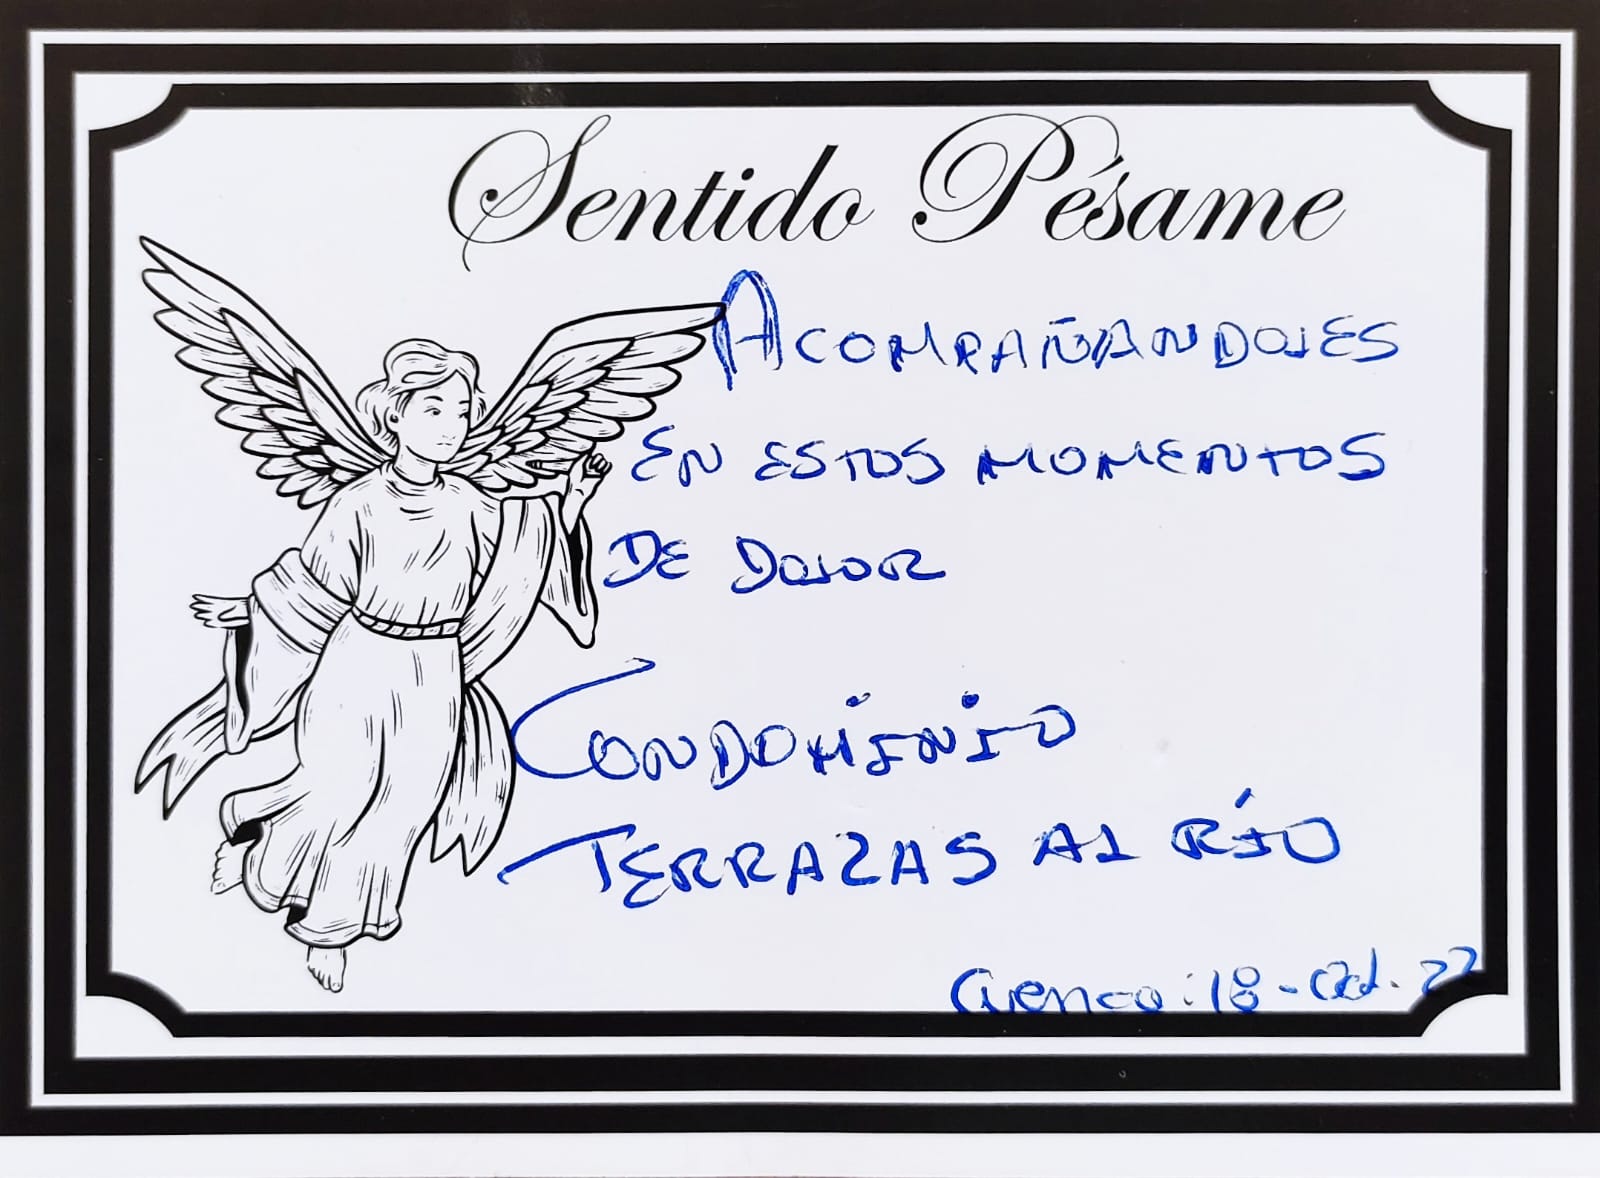 Sentido Pésame
ACOMPAÑÁNDOLES
EN ESTOS MOMENTOS
DE DOLOR
CONDOMINIO
TERRAZAS AL RÍO
Cuenca: 18-Oct. 22